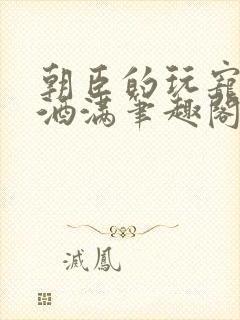 朝臣的玩寵
酒滿筆趣閣
滅鳳